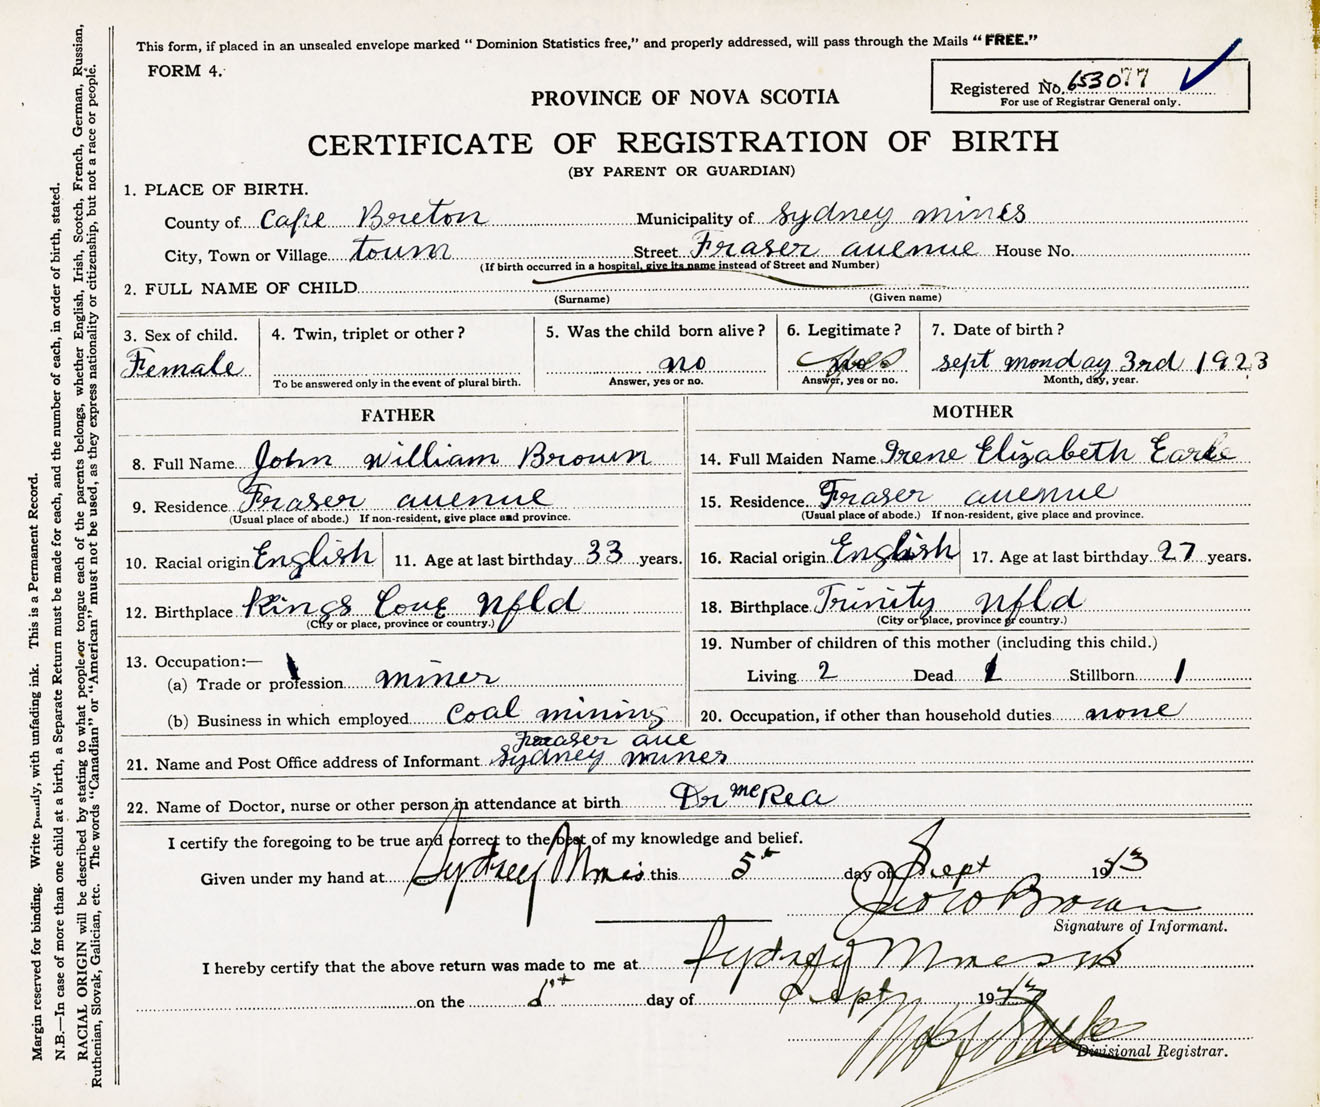 This form, if placed in an unsealed envelope marked “ Dominion Statistics free,” and properly addressed, will pass through the Mails “FREE.”
FORM 4.
Registered No. 653077
For use of Registrar General only.
PROVINCE OF NOVA SCOTIA
CERTIFICATE OF REGISTRATION OF BIRTH
(BY PARENT OR GUARDIAN)
1. PLACE OF BIRTH.
County of Cape Breton Municipality of Sydney mines
City, Town or Village town Street Fraser auenue House No.
(If birth occurred in a hospital, give its name instead of Street and Number)
2. FULL NAME OF CHILD
(Surname) (Given name)
3. Sex of child. 4. Twin, triplet or other? 5. Was the child born alive? 6. Legitimate? 7. Date of birth?
Female no sept monday 3rd 1923
To be answered only in the event of plural birth. Answer, yes or no. Answer, yes or no. Month, day, year.
FATHER MOTHER
8. Full Name John william Brown 14. Full Maiden Name Irene Elizabeth Earle
9. Residence Fraser auenue 15. Residence Fraser auenue
(Usual place of abode.) If non-resident, give place and province. (Usual place of abode.) If non-resident, give place and province.
10. Racial origin English 11. Age at last birthday 33 years. 16. Racial origin English 17. Age at last birthday 27 years.
12. Birthplace Kings Coue Nfld 18. Birthplace Trinity Nfld
(City or place, province or country.) (City or place, province or country.)
13. Occupation:— 19. Number of children of this mother (including this child.)
(a) Trade or profession miner Living 2 Dead 1 Stillborn 1
(b) Business in which employed coal mining 20. Occupation, if other than household duties none
Fraser aue
21. Name and Post Office address of Informant Sydney mines
22. Name of Doctor, nurse or other person in attendance at birth Dr McRea
I certify the foregoing to be true and correct to the best of my knowledge and belief.
Given under my hand at Sydney Mines this 5th day of Sept 19
Brown
Signature of Informant.
I hereby certify that the above return was made to me at Sydney Mines
on the day of Sept 19
Divisional Registrar.
Margin reserved for binding. Write plainly, with unfading ink. This is a Permanent Record.
N.B.—In case of more than one child at a birth, a Separate Return must be made for each, and the number of each, in order of birth, stated.
RACIAL ORIGIN will be described by stating to what people or tongue each of the parents belongs, whether English, Irish, Scotch, French, German, Russian,
Ruthenian, Slovak, Galician, etc. The words “Canadian” or “American” must not be used, as they express nationality or citizenship, but not a race or people.